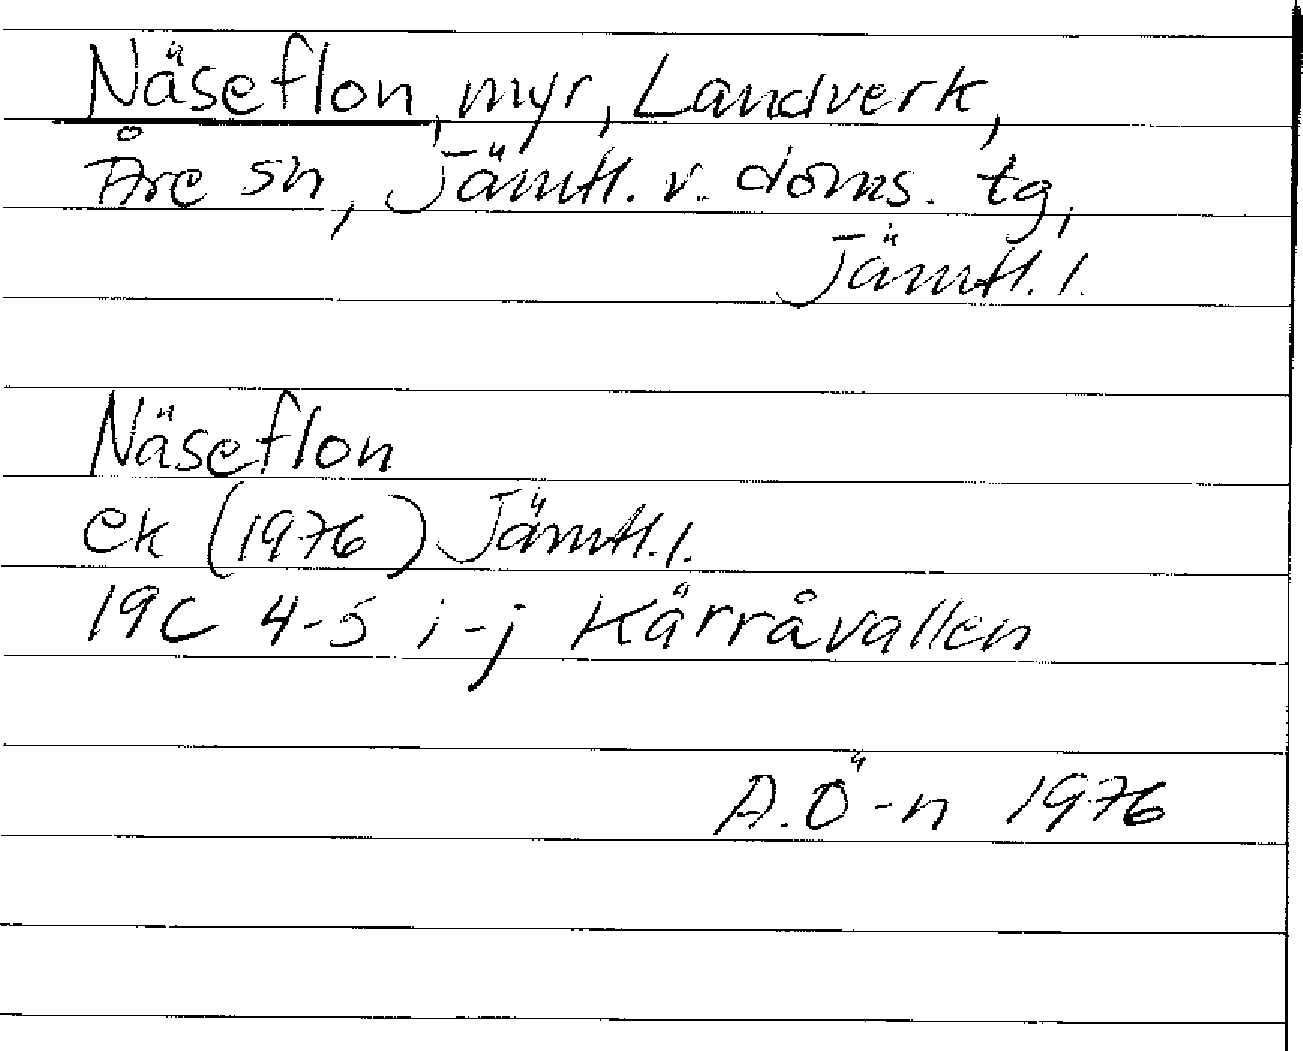 Näseflon, myr, Landverk,
Åre sn, Jämtl. v. doms. tg,
Jämtl. l.
Näseflon
ek (1976) Jämtl. l.
19C 4-5 i-j Kärråvallen
A.Ö-n 1976